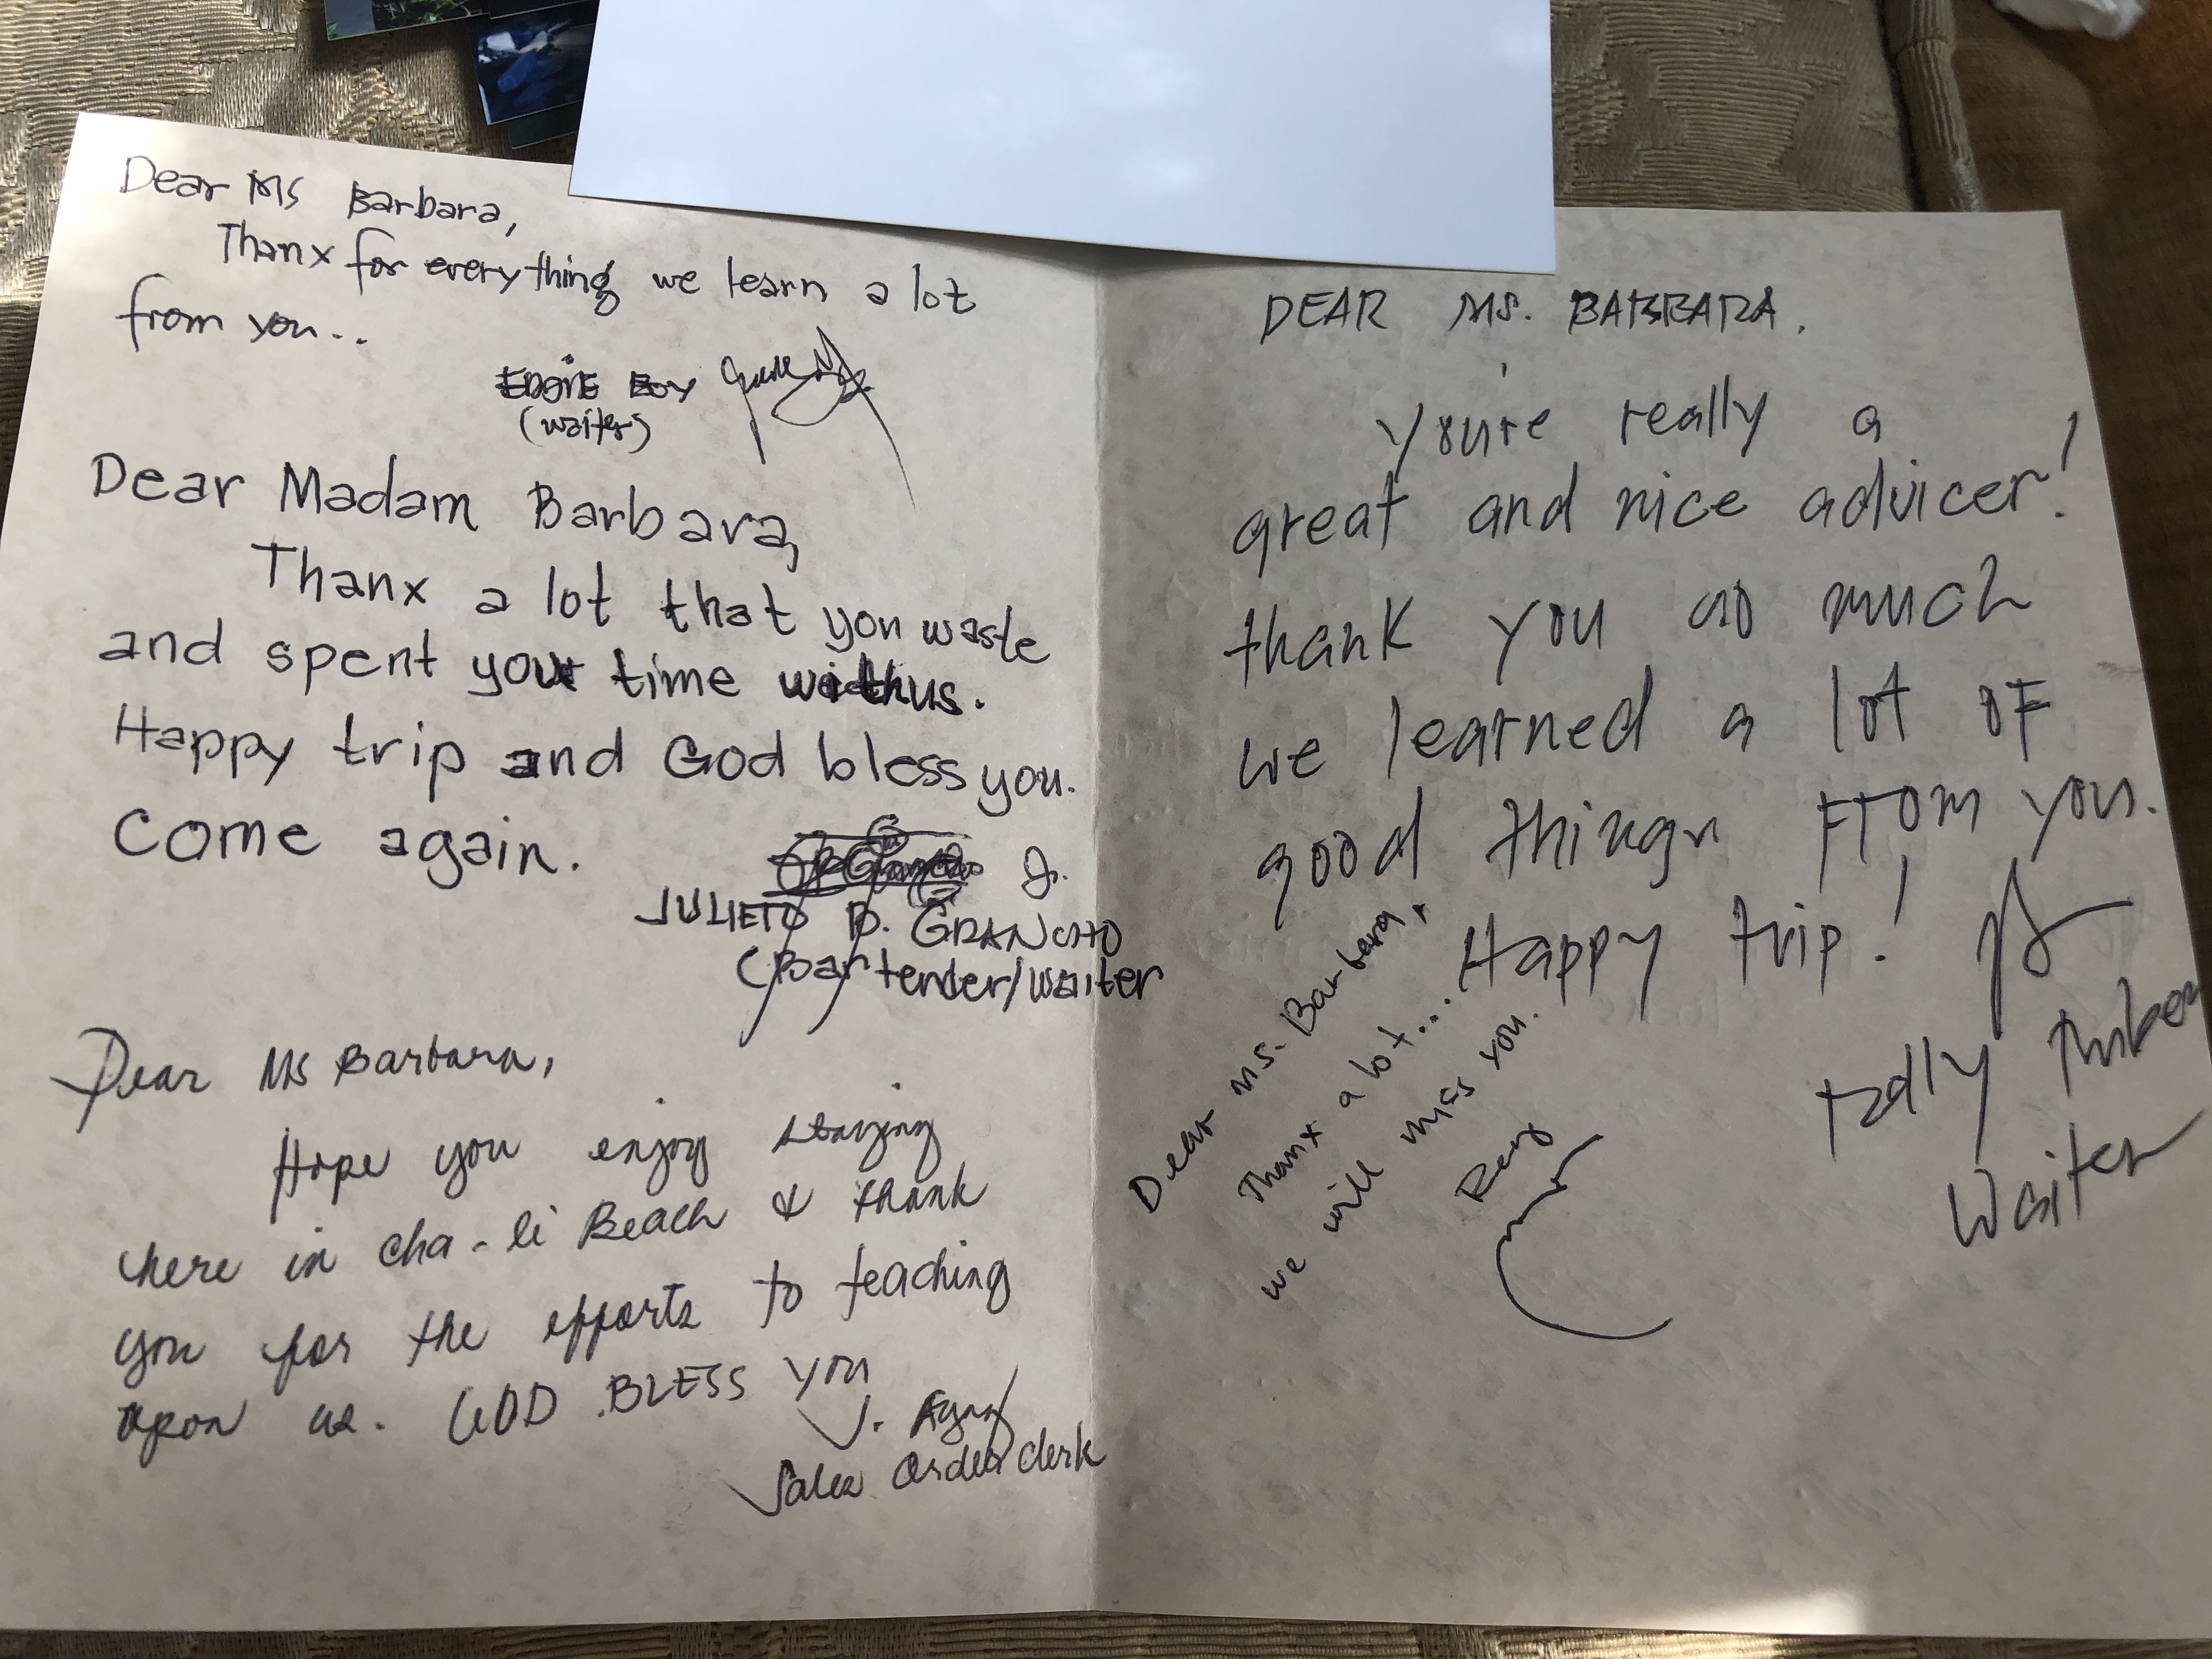 Dear Ms Barbara,
Thanx for everything we learn a lot
from you..
(waiter)
Dear Madam Barbara,
Thanx a lot that you waste
and spent your time with us.
Happy trip and God bless you.
Come again.
Jr.
JULIETO B. GRANCHO
(Bartender/waiter
Dear Ms Barbara,
Hope you enjoy staying
here in cha-li Beach & thank
you for the efforts to teaching
upon us. GOD BLESS you
J.
Sales Order Clerk
DEAR MS. BARBARA,
You're really a
great and nice advicer!
thank you so much
we learned a lot of
good things from you.
Happy trip!
Waiter
Dear Ms. Barbara,
Thanx a lot...
we will miss you.
Rey